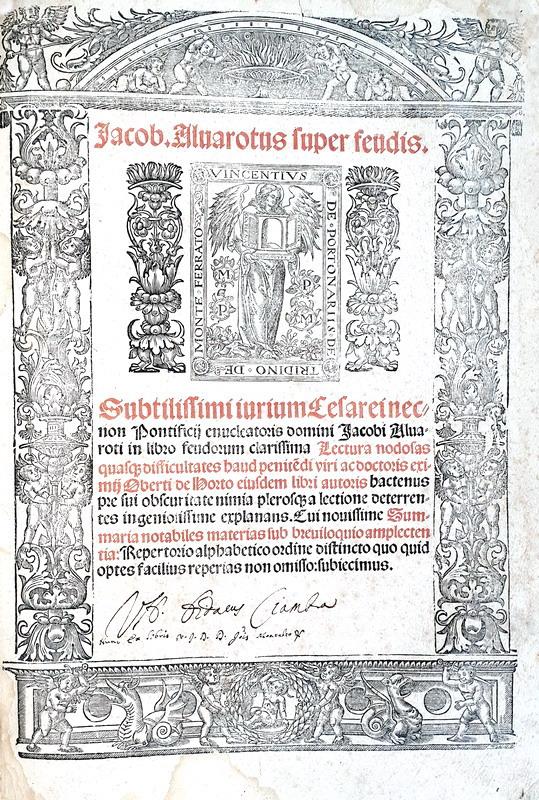 Jacob. Aluarotus super feudis.
VINCENTIVS
DE · PORTONARIIS · DE
TRIDINO · DE
MONTE · FERRATO
M P
S
P M
Subtilissimi iurium Cesarei nec/
non Pontificij enucleatoris domini Jacobi Alua-
roti in libro feudorum clarissima Lectura nodosas
quasq; difficultates haud penitēdi viri ac doctoris exi-
mij Oberti de Horto eiusdem libri autoris hactenus
pre sui obscuritate nimia plerosq; a lectione deterren-
tes ingeniosissime explanans. Cui nouissime Sum-
maria notabiles materias sub breuiloquio amplecten
tia: Repertorio alphabetico ordine distincto quo quid
optes facilius reperias non omisso: subiecimus.
Nunc Ex Libris